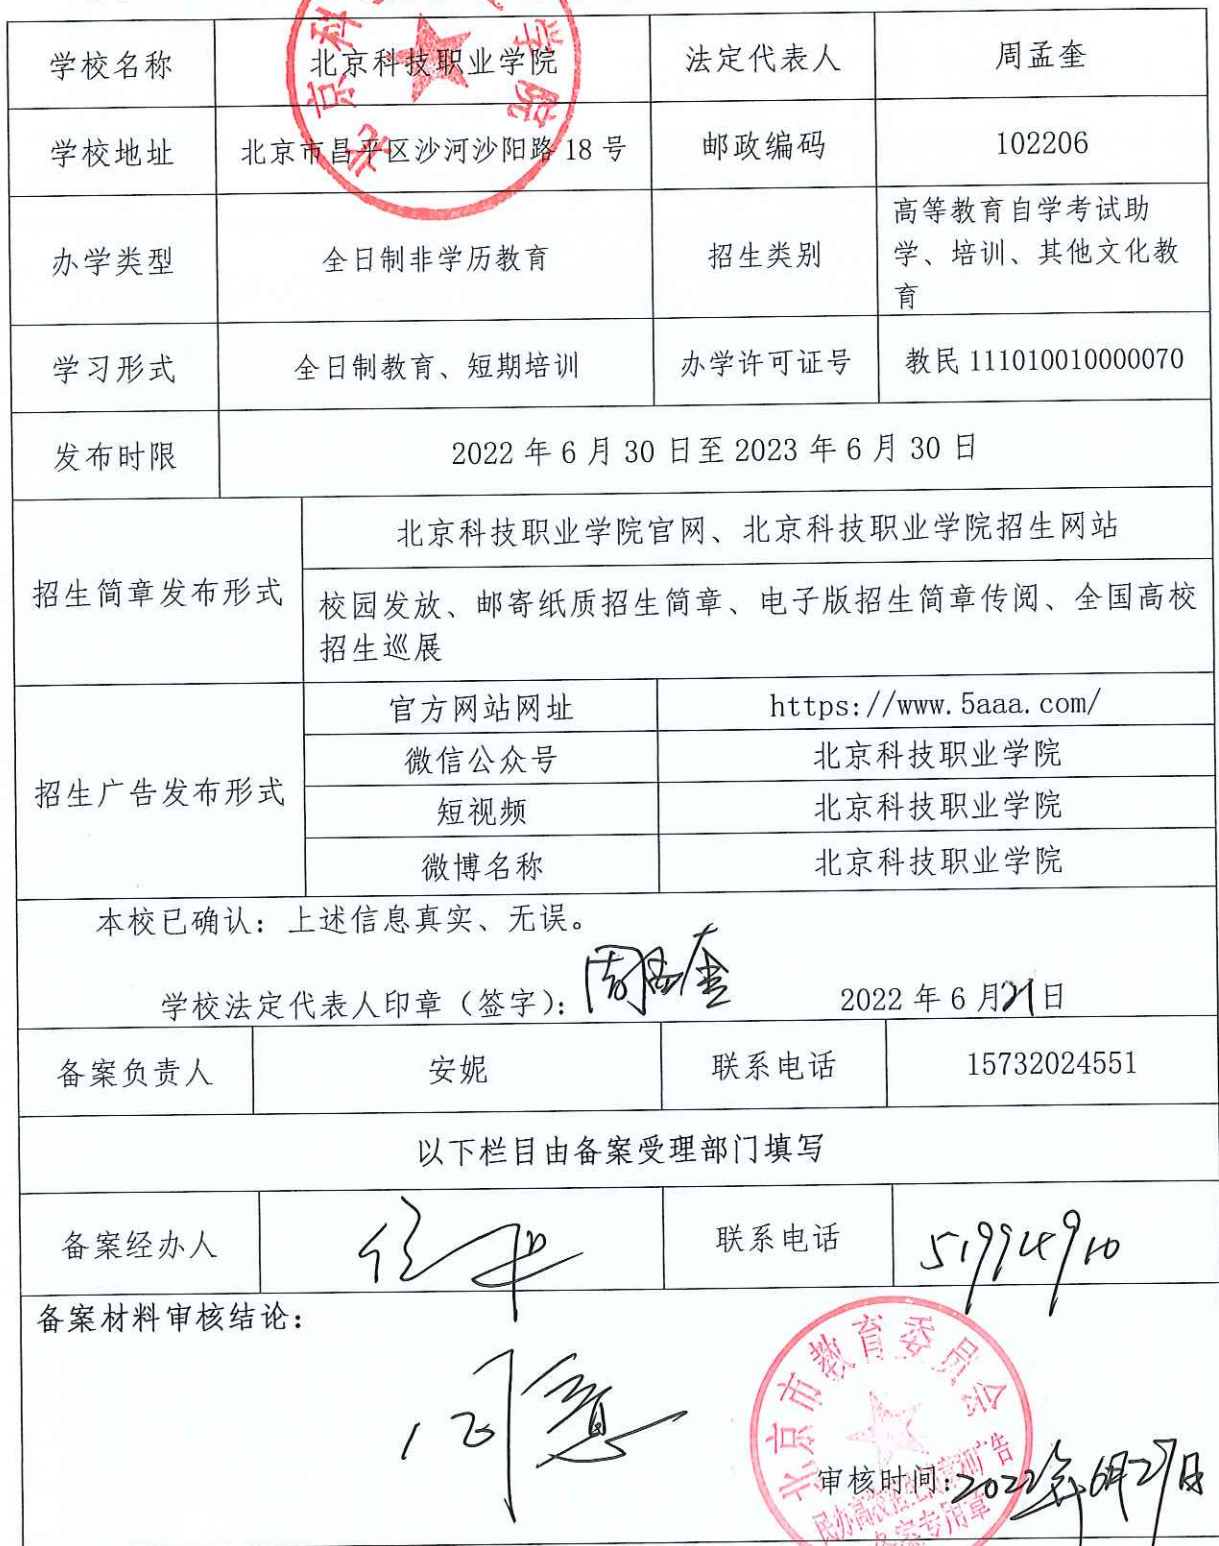 学校名称 北京科技职业学院 法定代表人 周孟奎
学校地址 北京市昌平区沙河沙阳路 18 号 邮政编码 102206
办学类型 全日制非学历教育 招生类别 高等教育自学考试助
学、培训、其他文化教
育
学习形式 全日制教育、短期培训 办学许可证号 教民 111010010000070
发布时限 2022 年 6 月 30 日至 2023 年 6 月 30 日
招生简章发布形式 北京科技职业学院官网、北京科技职业学院招生网站
校园发放、邮寄纸质招生简章、电子版招生简章传阅、全国高校
招生巡展
招生广告发布形式 官方网站网址 https://www.5aaa.com/
微信公众号 北京科技职业学院
短视频 北京科技职业学院
微博名称 北京科技职业学院
本校已确认：上述信息真实、无误。
学校法定代表人印章（签字）：周孟奎 2022 年 6 月21日
备案负责人 安妮 联系电话 15732024551
以下栏目由备案受理部门填写
备案经办人 联系电话 51994910
备案材料审核结论：
同意
北京市教育委员会
审核时间：2022年6月27日
备案专用章